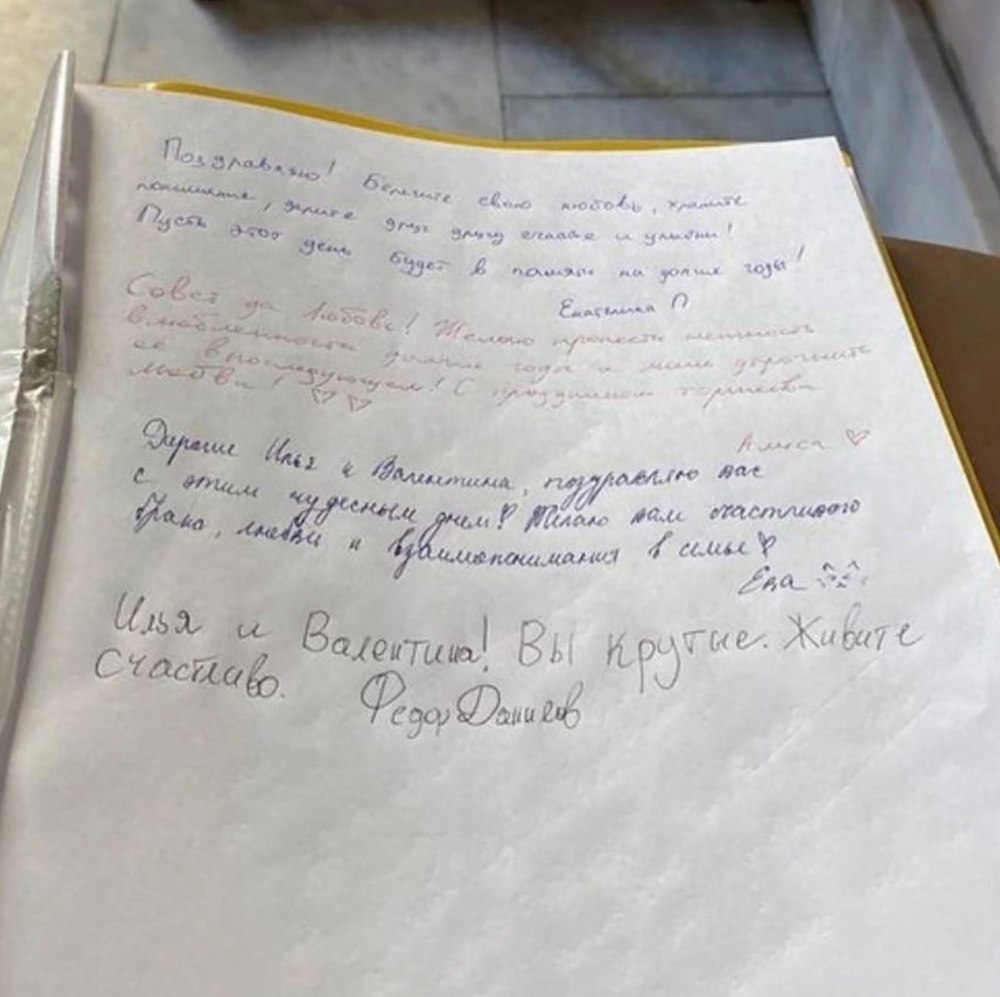 Поздравляю! Берегите свою любовь, храните
понимание, дарите друг другу счастье и улыбки!
Пусть этот день будет в памяти на долгие годы!
Екатерина П
Совет да Любовь! Желаю пронести нежность
влюбленности долгие годы и лишь
её в последующем! С праздником торжества
любви! ♡♡
Алиса ♡
Дорогие Илья и Валентина, поздравляю вас
с этим чудесным днем! Желаю вам счастливого
брака, любви и взаимопонимания в семье ♡
Ева
Илья и Валентина! Вы крутые. Живите
счастливо.
Федор Данилов